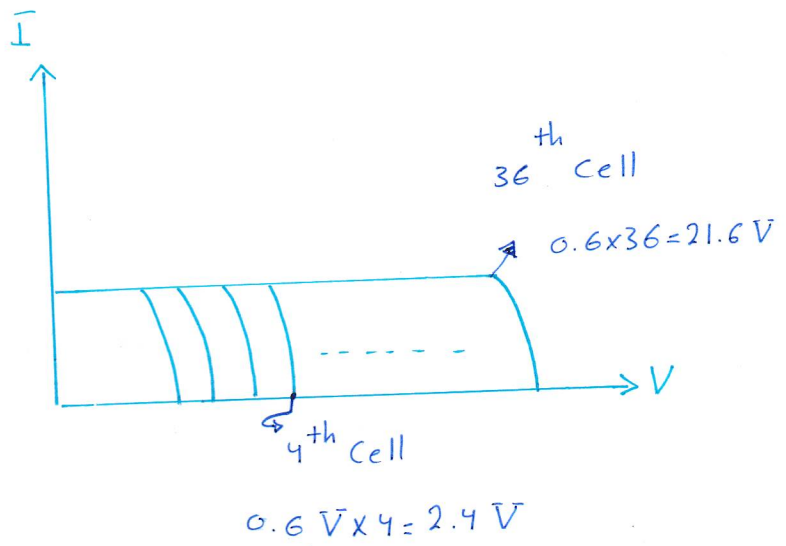 I
36th Cell
0.6x36=21.6 V
V
4th Cell
0.6 V x 4 = 2.4 V